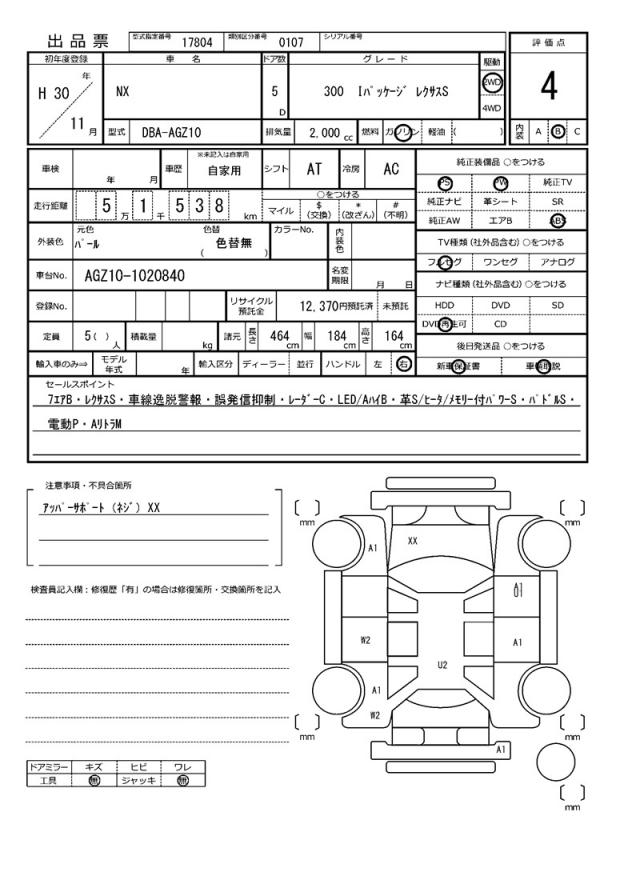 出品票 型式指定番号 17804 類別区分番号 0107 シリアル番号
評価点
初年度登録 車名 ドア数 グレード 駆動
H 30 年 NX 5 D 300 Iパッケージ レクサスS 2WD 4
4WD
11 月 型式 DBA-AGZ10 排気量 2,000 cc 燃料 ガソリン 軽油 ( ) 内装 A B C
車検 年 月 車歴 ※未記入は自家用 自家用 シフト AT 冷房 AC
純正装備品 ○をつける
PS PW 純正TV
走行距離 5 万 1 千 5 3 8 km ○をつける
マイル $ (交換) * (改ざん) # (不明)
純正ナビ 革シート SR
純正AW エアB ABS
外装色 元色 パール 色替 ( 色替無 ) カラーNo. 内装色
TV種類 (社外品含む) ○をつける
フルセグ ワンセグ アナログ
車台No. AGZ10-1020840 名変期限 月 日
ナビ種類 (社外品含む) ○をつける
登録No. リサイクル預託金 12,370円預託済 未預託
HDD DVD SD
DVD再生可 CD
定員 5( ) 人 積載量 kg 諸元 長さ 464 cm 幅 184 cm 高さ 164 cm
後日発送品 ○をつける
輸入車のみ⇒ モデル年式 年 輸入区分 ディーラー 並行 ハンドル 左 右
新車保証書 車輌取説
セールスポイント
7エアB・レクサスS・車線逸脱警報・誤発信抑制・レーダーC・LED/AハイB・革S/ヒータ/メモリー付パワーS・パドルS・
電動P・AリトラM
注意事項・不具合箇所
アッパーサポート(ネジ)XX
検査員記入欄:修復歴「有」の場合は修復箇所・交換箇所を記入
mm
mm
A1
XX
A1
01
W2
A1
U2
A1
W2
mm
mm
A1
mm
ドアミラー キズ ヒビ ワレ
工具 無 ジャッキ 無